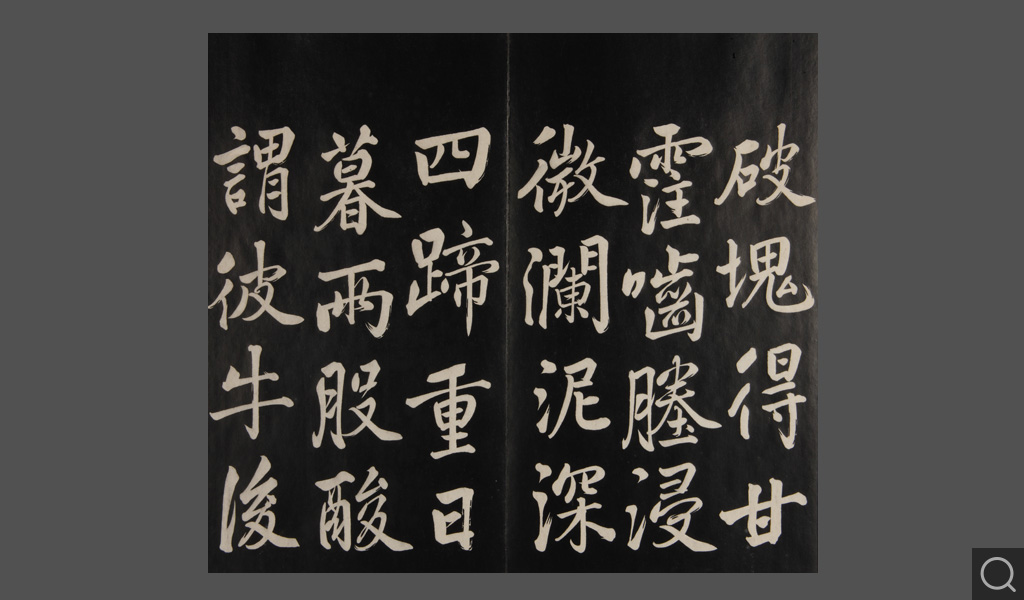 破塊得甘
霔嚙塍浸
微瀾泥深
四蹄重日
暮兩股酸
謂彼牛後